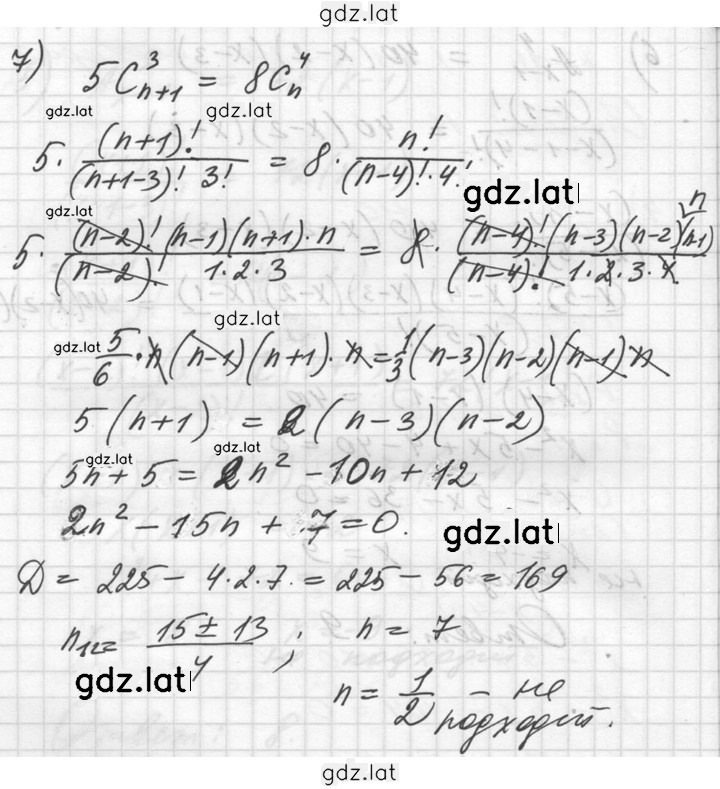 gdz.lat
7) 5C³ₙ₊₁ = 8C⁴ₙ
gdz.lat gdz.lat
5 · (n+1)! / (n+1-3)! 3! = 8 · n! / (n-4)! · 4!
gdz.lat
gdz.lat
5 · (n-2)! (n-1)(n+1) · n / (n-2)! 1·2·3 = 8 · (n-4)! (n-3)(n-2)(n-1) n / (n-4)! 1·2·3·4
gdz.lat
gdz.lat 5/6 · n (n-1)(n+1) · n = 1/3 (n-3)(n-2)(n-1) n
5(n+1) = 2(n-3)(n-2)
gdz.lat gdz.lat
5n + 5 = 2n² - 10n + 12
2n² - 15n + 7 = 0.
gdz.lat
D = 225 - 4·2·7 = 225 - 56 = 169
n₁₂ = 15 ± 13 / 4 ; n = 7
gdz.lat
n = 1/2 - не
подходит.
gdz.lat